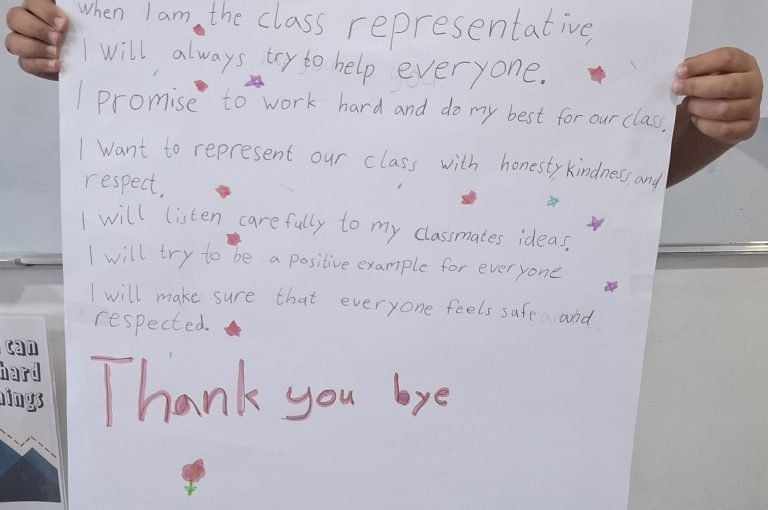 When I am the class representative,
I Will always try to help everyone.
I promise to work hard and do my best for our class.
I want to represent our class with honesty, kindness, and
respect.
I will listen carefully to my classmates ideas.
I will try to be a positive example for everyone
I will make sure that everyone feels safe and
respected.
Thank you bye
can
hard